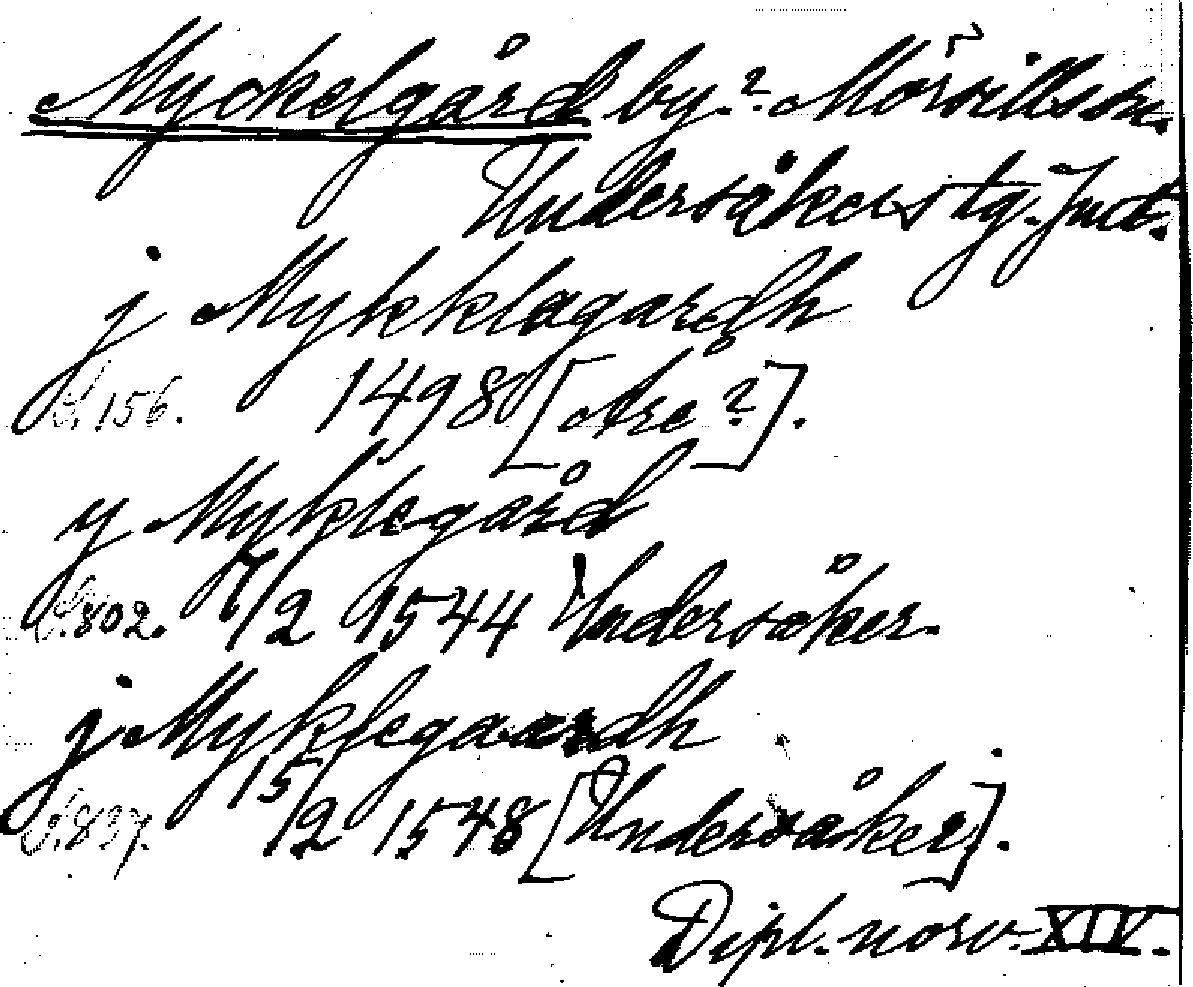 Myckelgård by.? Mörsillssn.
Undersåkers tg. Jmtl.
j Mykklagardh
S. 156. 1498 [Åre?].
y Myklegård
S. 802. 7/2 1544 Undersåker.
j Myklegaardh
S. 837. 15/2 1548 [Undersåker].
Dipl. norv. XIV.